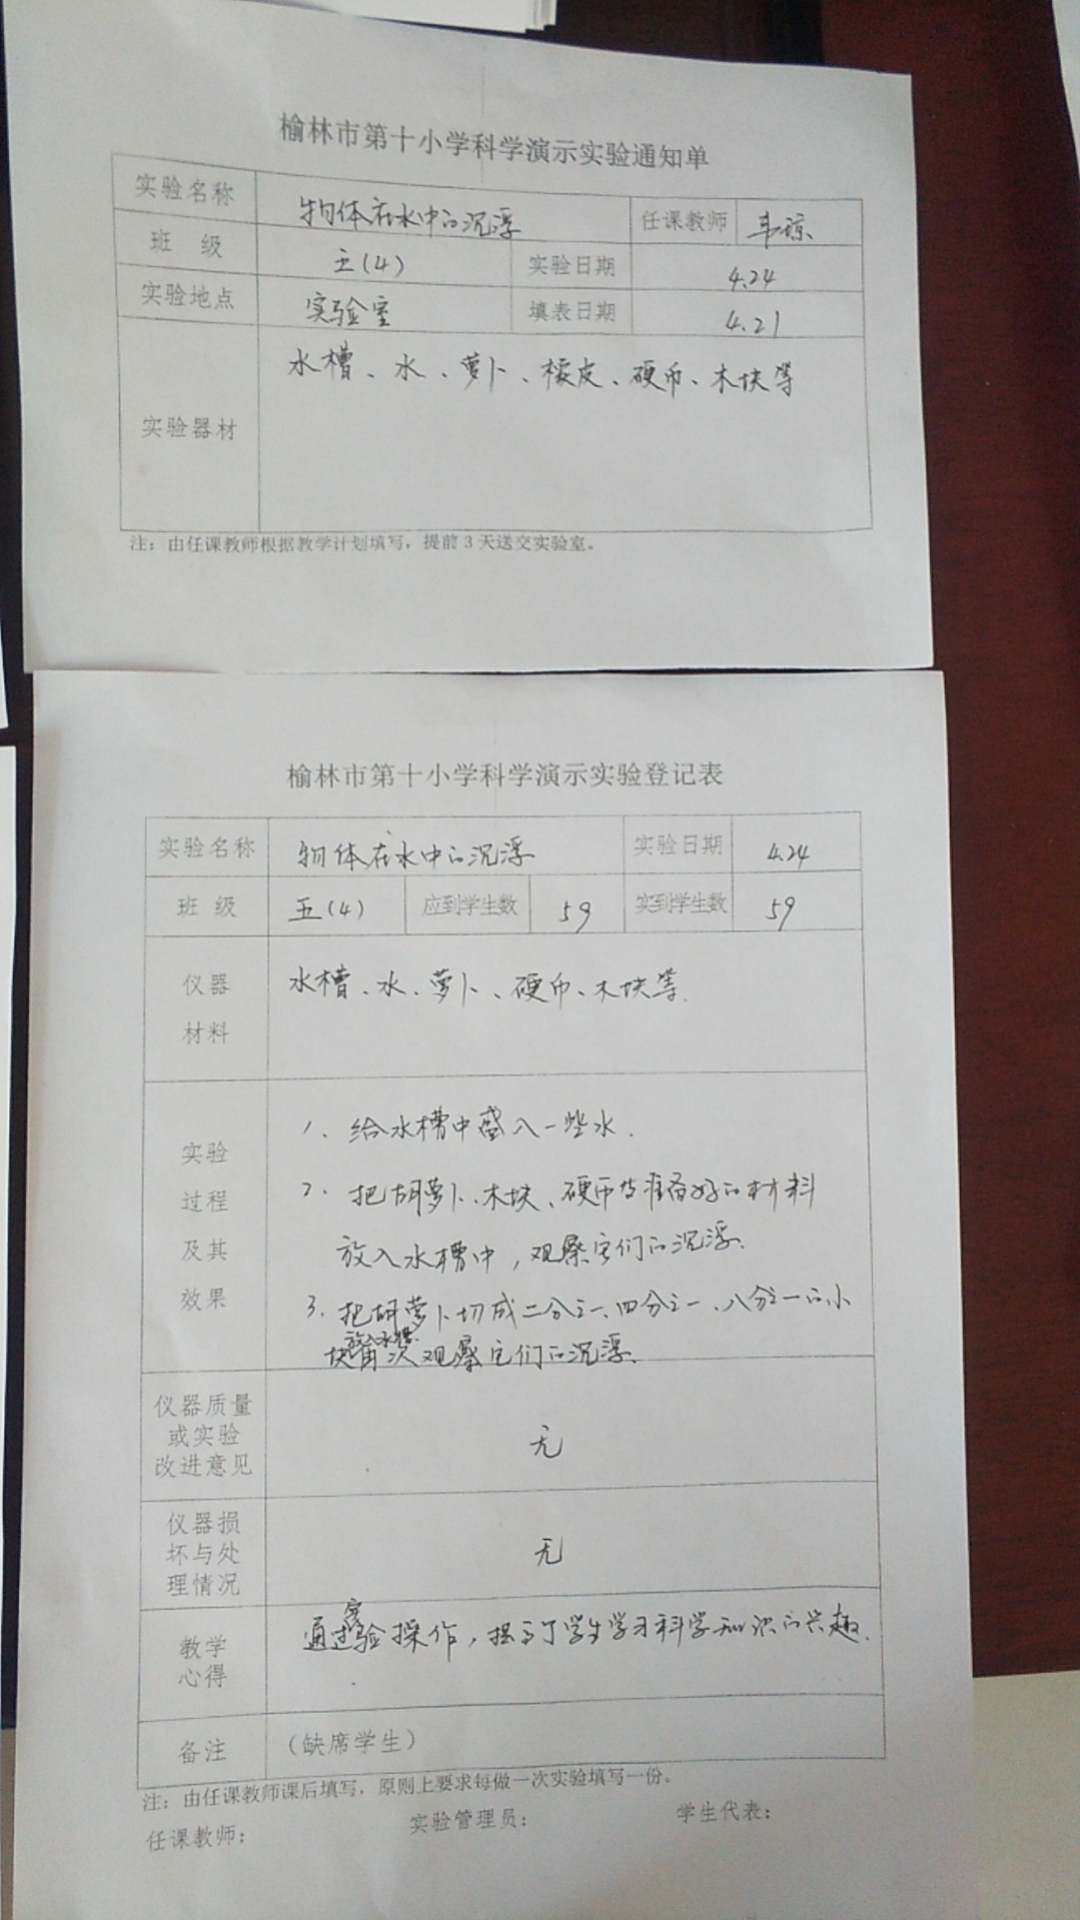 榆林市第十小学科学演示实验通知单
实验名称 物体在水中的沉浮 任课教师 韦琼
班 级 五(4) 实验日期 4.24
实验地点 实验室 填表日期 4.21
实验器材 水槽、水、萝卜、橡皮、硬币、木块等
注：由任课教师根据教学计划填写，提前3天送交实验室。
榆林市第十小学科学演示实验登记表
实验名称 物体在水中的沉浮 实验日期 4.24
班 级 五(4) 应到学生数 59 实到学生数 59
仪器 水槽、水、萝卜、硬币、木块等.
材料
实验 1、给水槽中盛入一些水.
过程 2、把胡萝卜、木块、硬币等准备好的材料
及其 放入水槽中，观察它们的沉浮.
效果 3、把胡萝卜切成二分之一、四分之一、八分之一的小
块放入水槽再次观察它们的沉浮.
仪器质量
或实验 无
改进意见
仪器损
坏与处 无
理情况
教学 通过实验操作，提高了学生学习科学知识的兴趣.
心得
备注 （缺席学生）
注：由任课教师课后填写，原则上要求每做一次实验填写一份。
任课教师： 实验管理员： 学生代表：